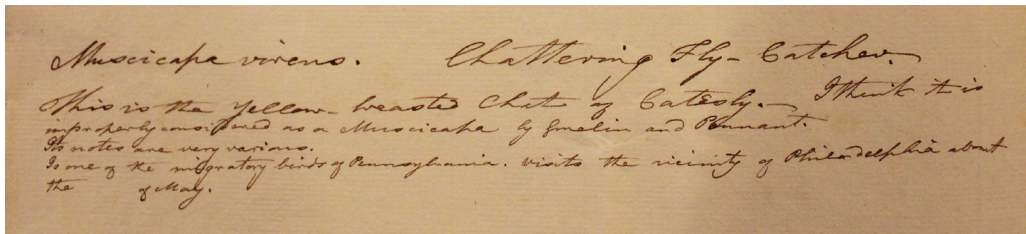 Muscicapa virens. Chattering Fly-Catcher.
This is the Yellow-breasted Chat of Catesby. I think it is
improperly considered as a Muscicapa by Gmelin and Pennant.
Its notes are very various.
Is one of the migratory birds of Pennsylvania. visits the vicinity of Philadelphia about
the of May.